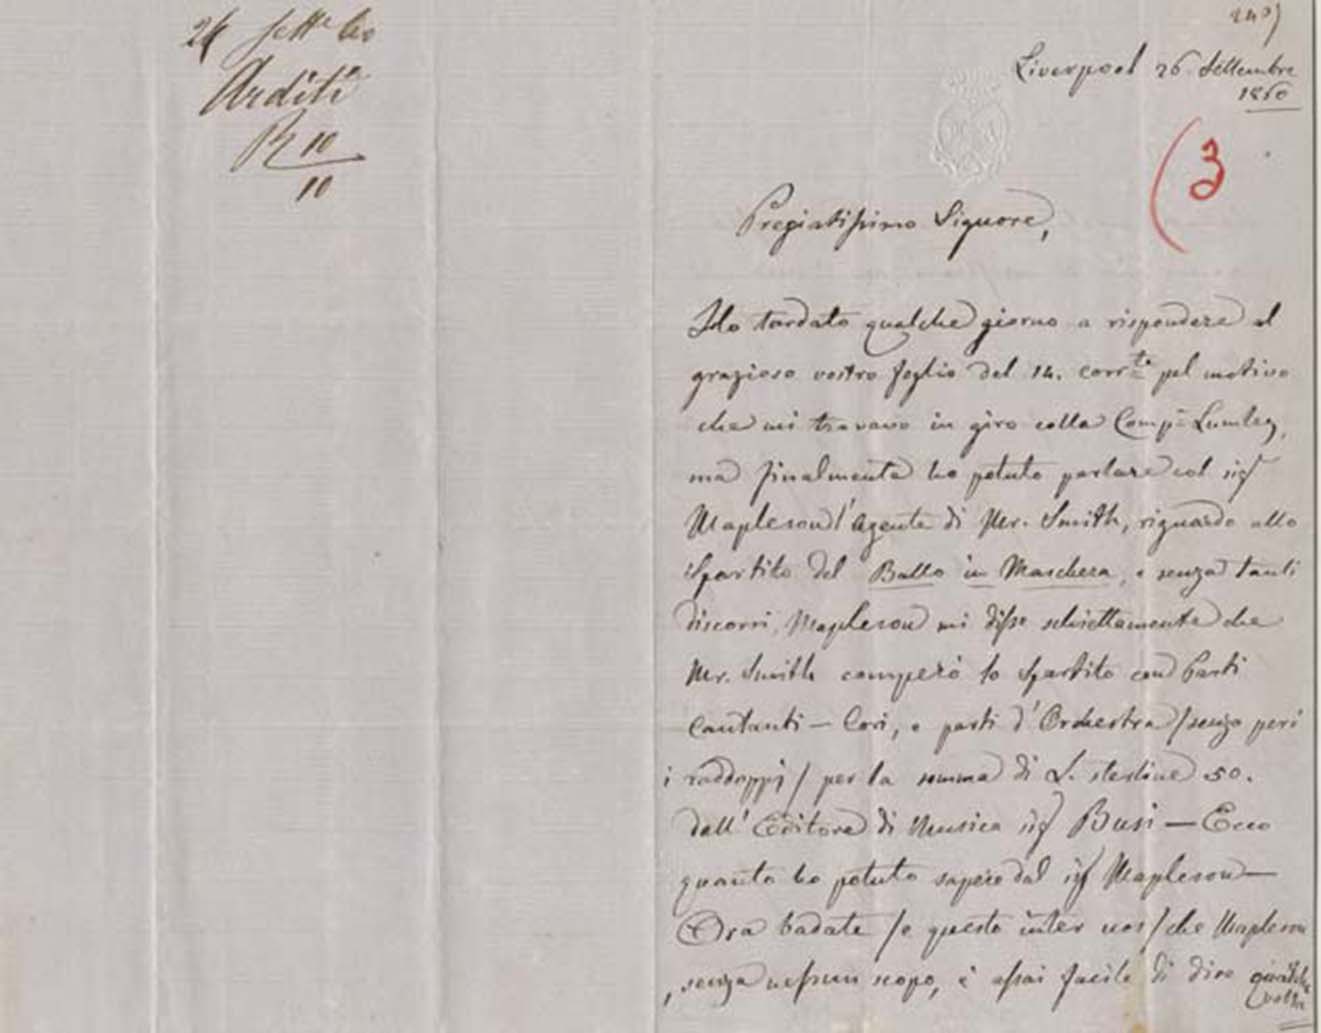 26 Sett.e 60
Arditi
R 10
10
Liverpool 26 Settembre
1860
(3
Pregiatissimo Signore,
Ho tardato qualche giorno a rispondere al
grazioso vostro foglio del 14. corr.te pel motivo
che mi trovavo in giro colla Comp.a Lumley,
ma finalmente ho potuto parlare col sig.r
Mapleson l'Agente di Mr. Smith, riguardo allo
Spartito del Ballo in Maschera, e senza tanti
discorsi, Mapleson mi disse schiettamente che
Mr. Smith comperò lo Spartito con Parti
Cantanti — Cori, e parti d'Orchestra / senza però
i raddoppj / per la somma di L. sterline 50.
dall'Editore di Musica sig.r Busi — Ecco
quanto ho potuto sapere dal sig.r Mapleson —
Ora badate / e questo inter nos / che Mapleson
, senza nessun scopo, è assai facile di dire